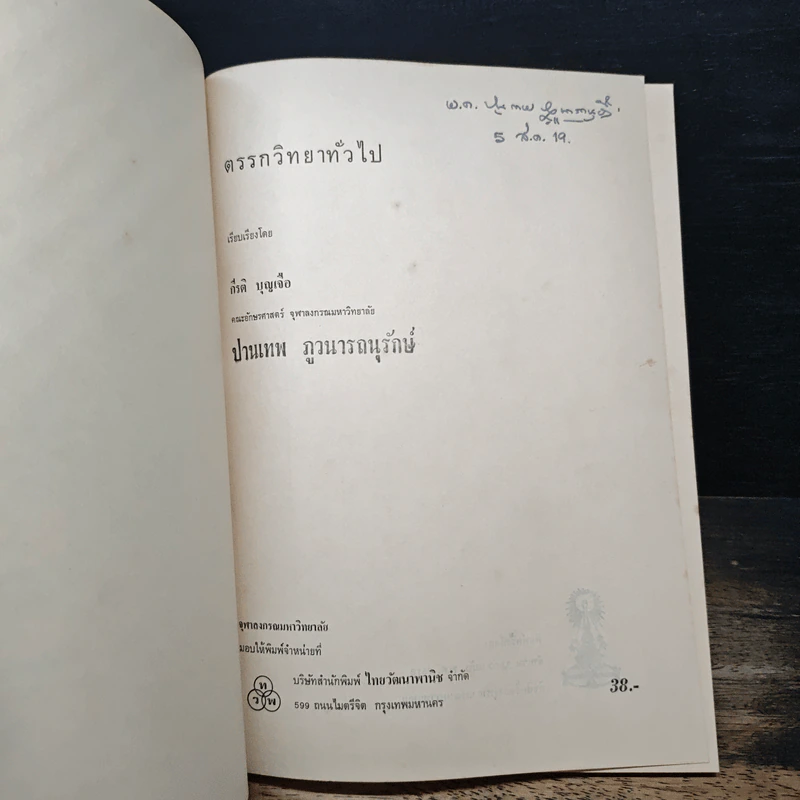 พ.ต.
5 ส.ค. 19.
ตรรกวิทยาทั่วไป
เรียบเรียงโดย
กีรติ บุญเจือ
คณะอักษรศาสตร์ จุฬาลงกรณมหาวิทยาลัย
ปานเทพ ภูวนารถนุรักษ์
จุฬาลงกรณมหาวิทยาลัย
มอบให้พิมพ์จำหน่ายที่
ท
ว พ
บริษัทสำนักพิมพ์ ไทยวัฒนาพานิช จำกัด
599 ถนนไมตรีจิต กรุงเทพมหานคร
38.-